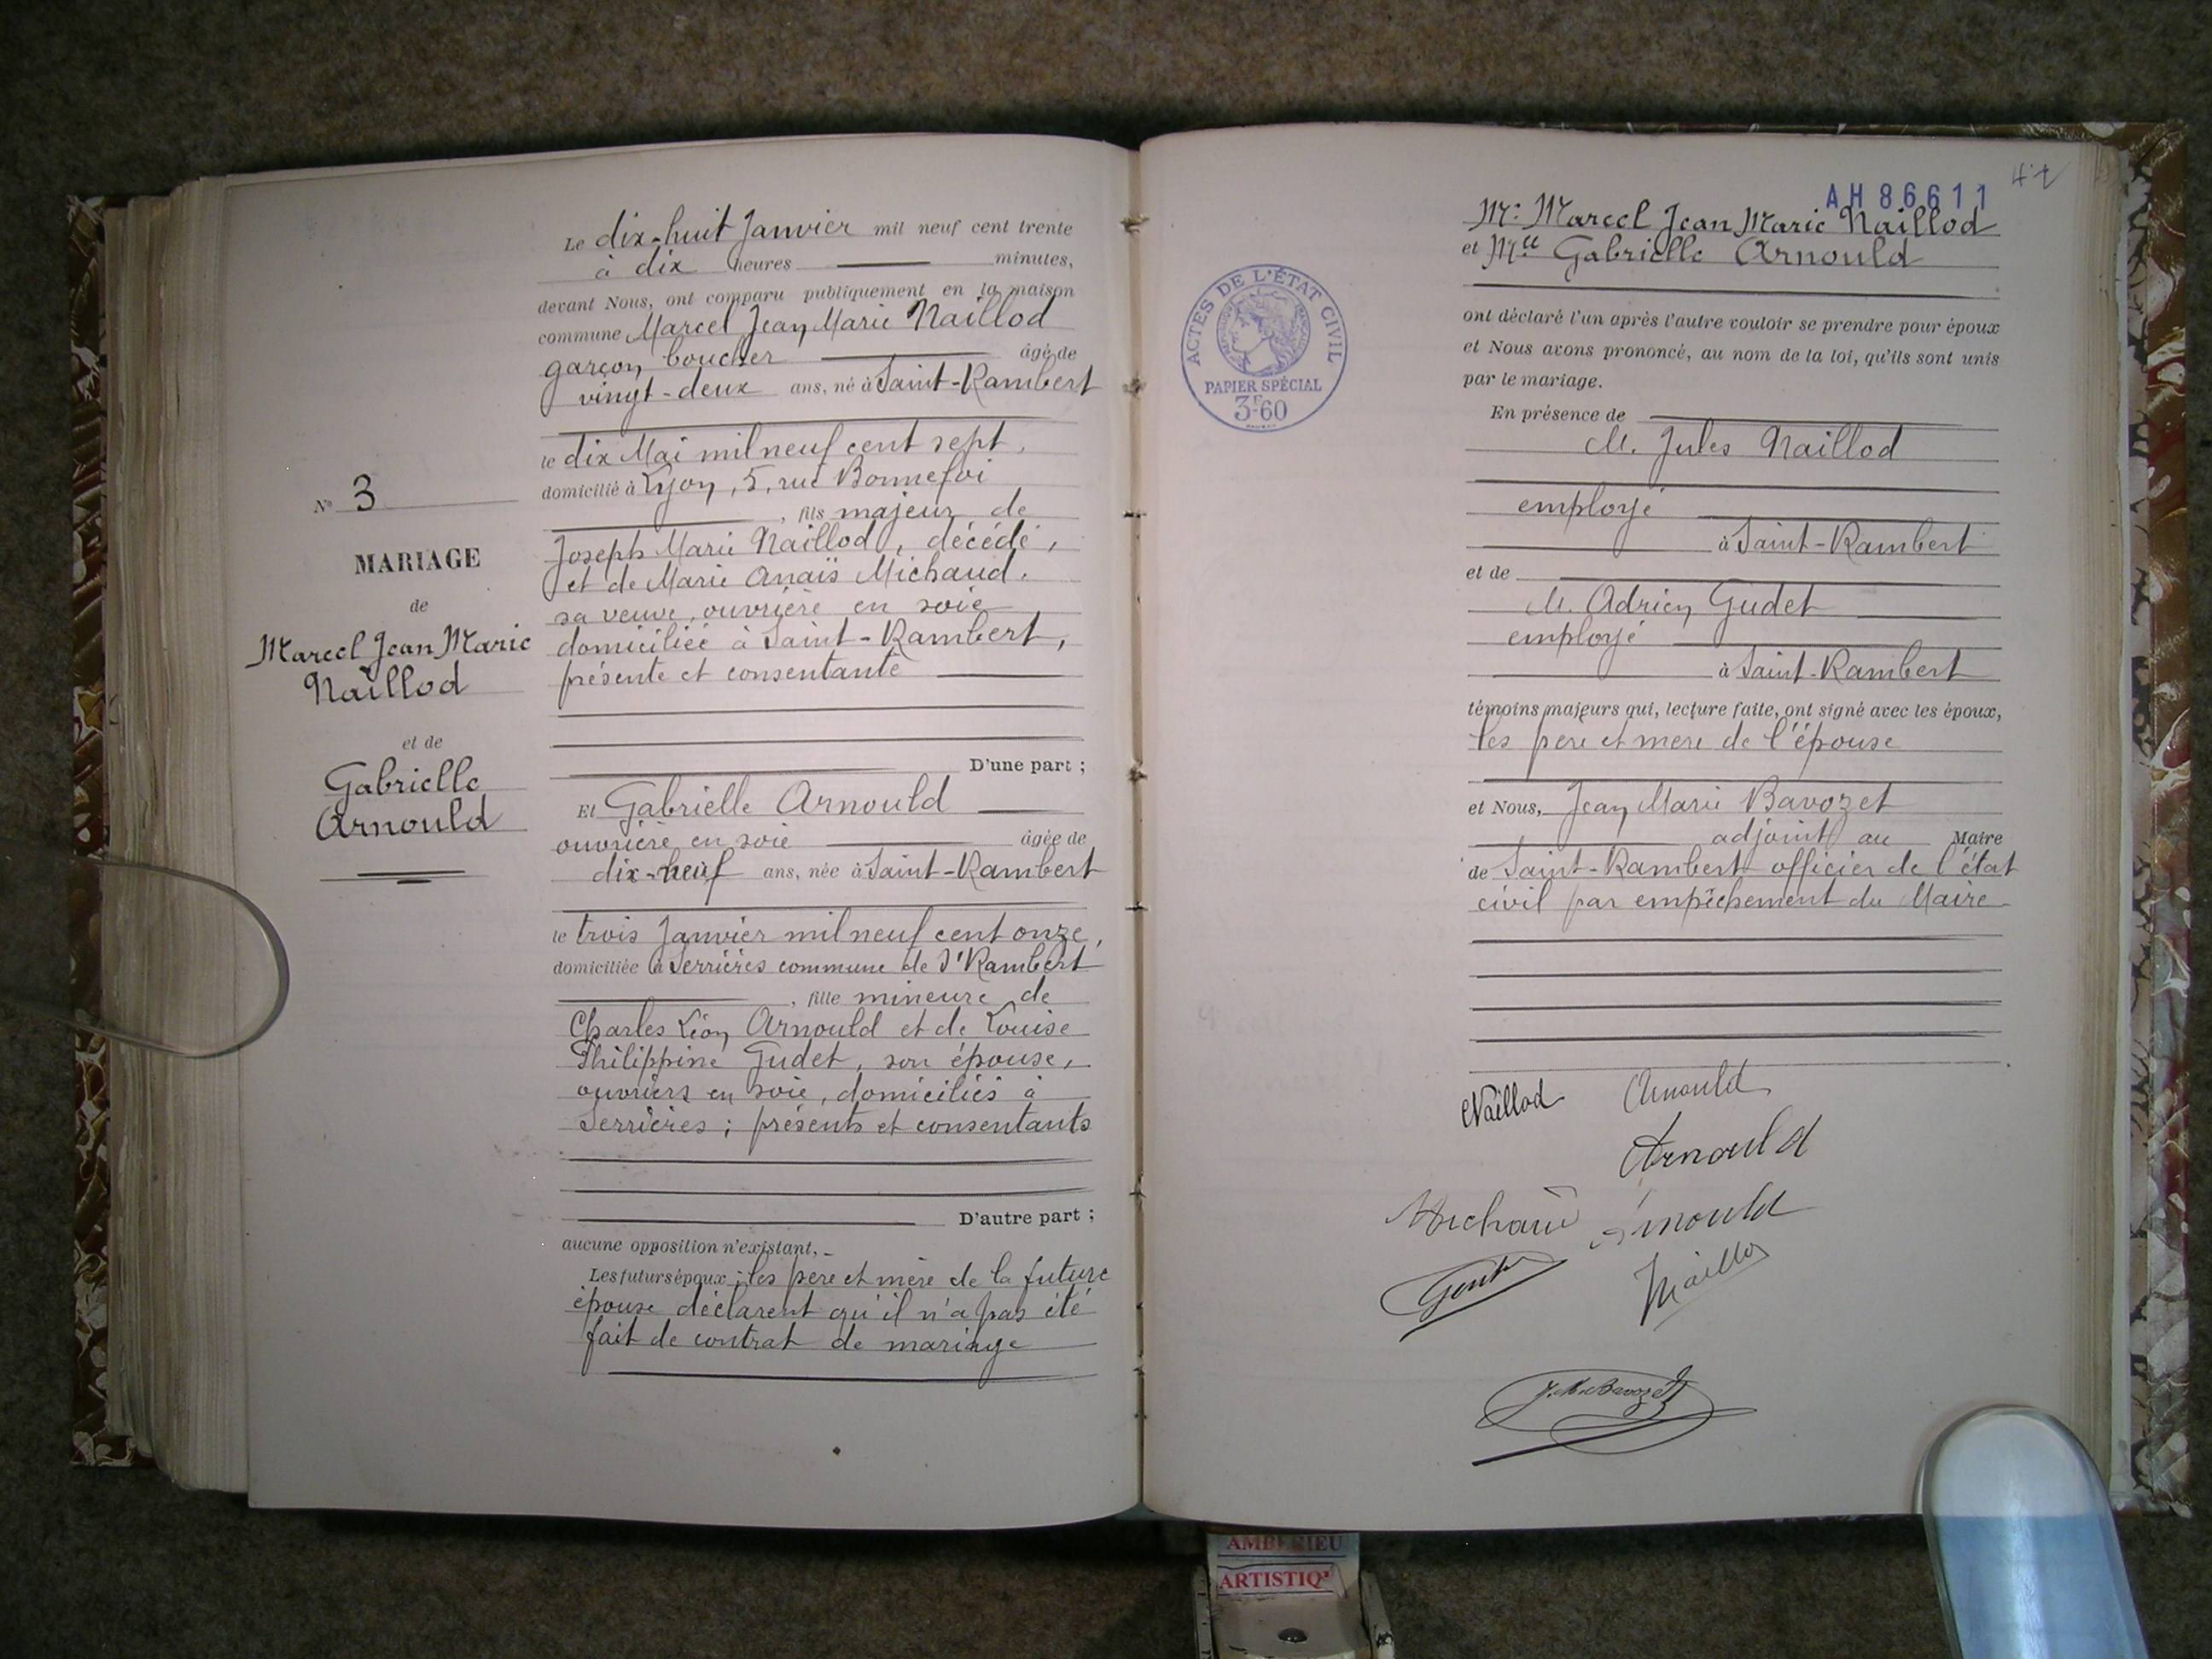 N° 3
MARIAGE
de
Marcel Jean Marie
Naillod
et de
Gabrielle
Arnould
Le dix-huit Janvier mil neuf cent trente
à dix heures minutes,
devant Nous, ont comparu publiquement en la maison
commune Marcel Jean Marie Naillod
garçon boucher âgé de
vingt-deux ans, né à Saint-Rambert
le dix Mai mil neuf cent sept,
domicilié à Lyon, 5, rue Bonnefoi
, fils majeur de
Joseph Marie Naillod, décédé,
et de Marie Anaïs Michaud.
sa veuve, ouvrière en soie
domiciliée à Saint-Rambert,
présente et consentante
D'une part ;
Et Gabrielle Arnould
ouvrière en soie âgée de
dix-neuf ans, née à Saint-Rambert
le trois Janvier mil neuf cent onze,
domiciliée à Serrières commune de St Rambert
, fille mineure de
Charles Léon Arnould et de Louise
Philippine Gudet, son épouse,
ouvriers en soie, domiciliés à
Serrières ; présents et consentants
D'autre part ;
aucune opposition n'existant,
Les futurs époux ; les père et mère de la future
épouse déclarent qu'il n'a pas été
fait de contrat de mariage
AH 86611
ACTES DE L'ÉTAT CIVIL
PAPIER SPÉCIAL
3F60
Mr Marcel Jean Marie Naillod
et Melle Gabrielle Arnould
ont déclaré l'un après l'autre vouloir se prendre pour époux
et Nous avons prononcé, au nom de la loi, qu'ils sont unis
par le mariage.
En présence de
M. Jules Naillod
employé
à Saint-Rambert
et de
M. Adrien Gudet
employé
à Saint-Rambert
témoins majeurs qui, lecture faite, ont signé avec les époux,
les père et mère de l'épouse
et Nous, Jean Marie Bavozet
adjoint au Maire
de Saint-Rambert officier de l'état
civil par empêchement du Maire
Naillod Arnould
Arnould
Michaud Arnould
Naillod
J. M. Bavozet
ARTISTIQ